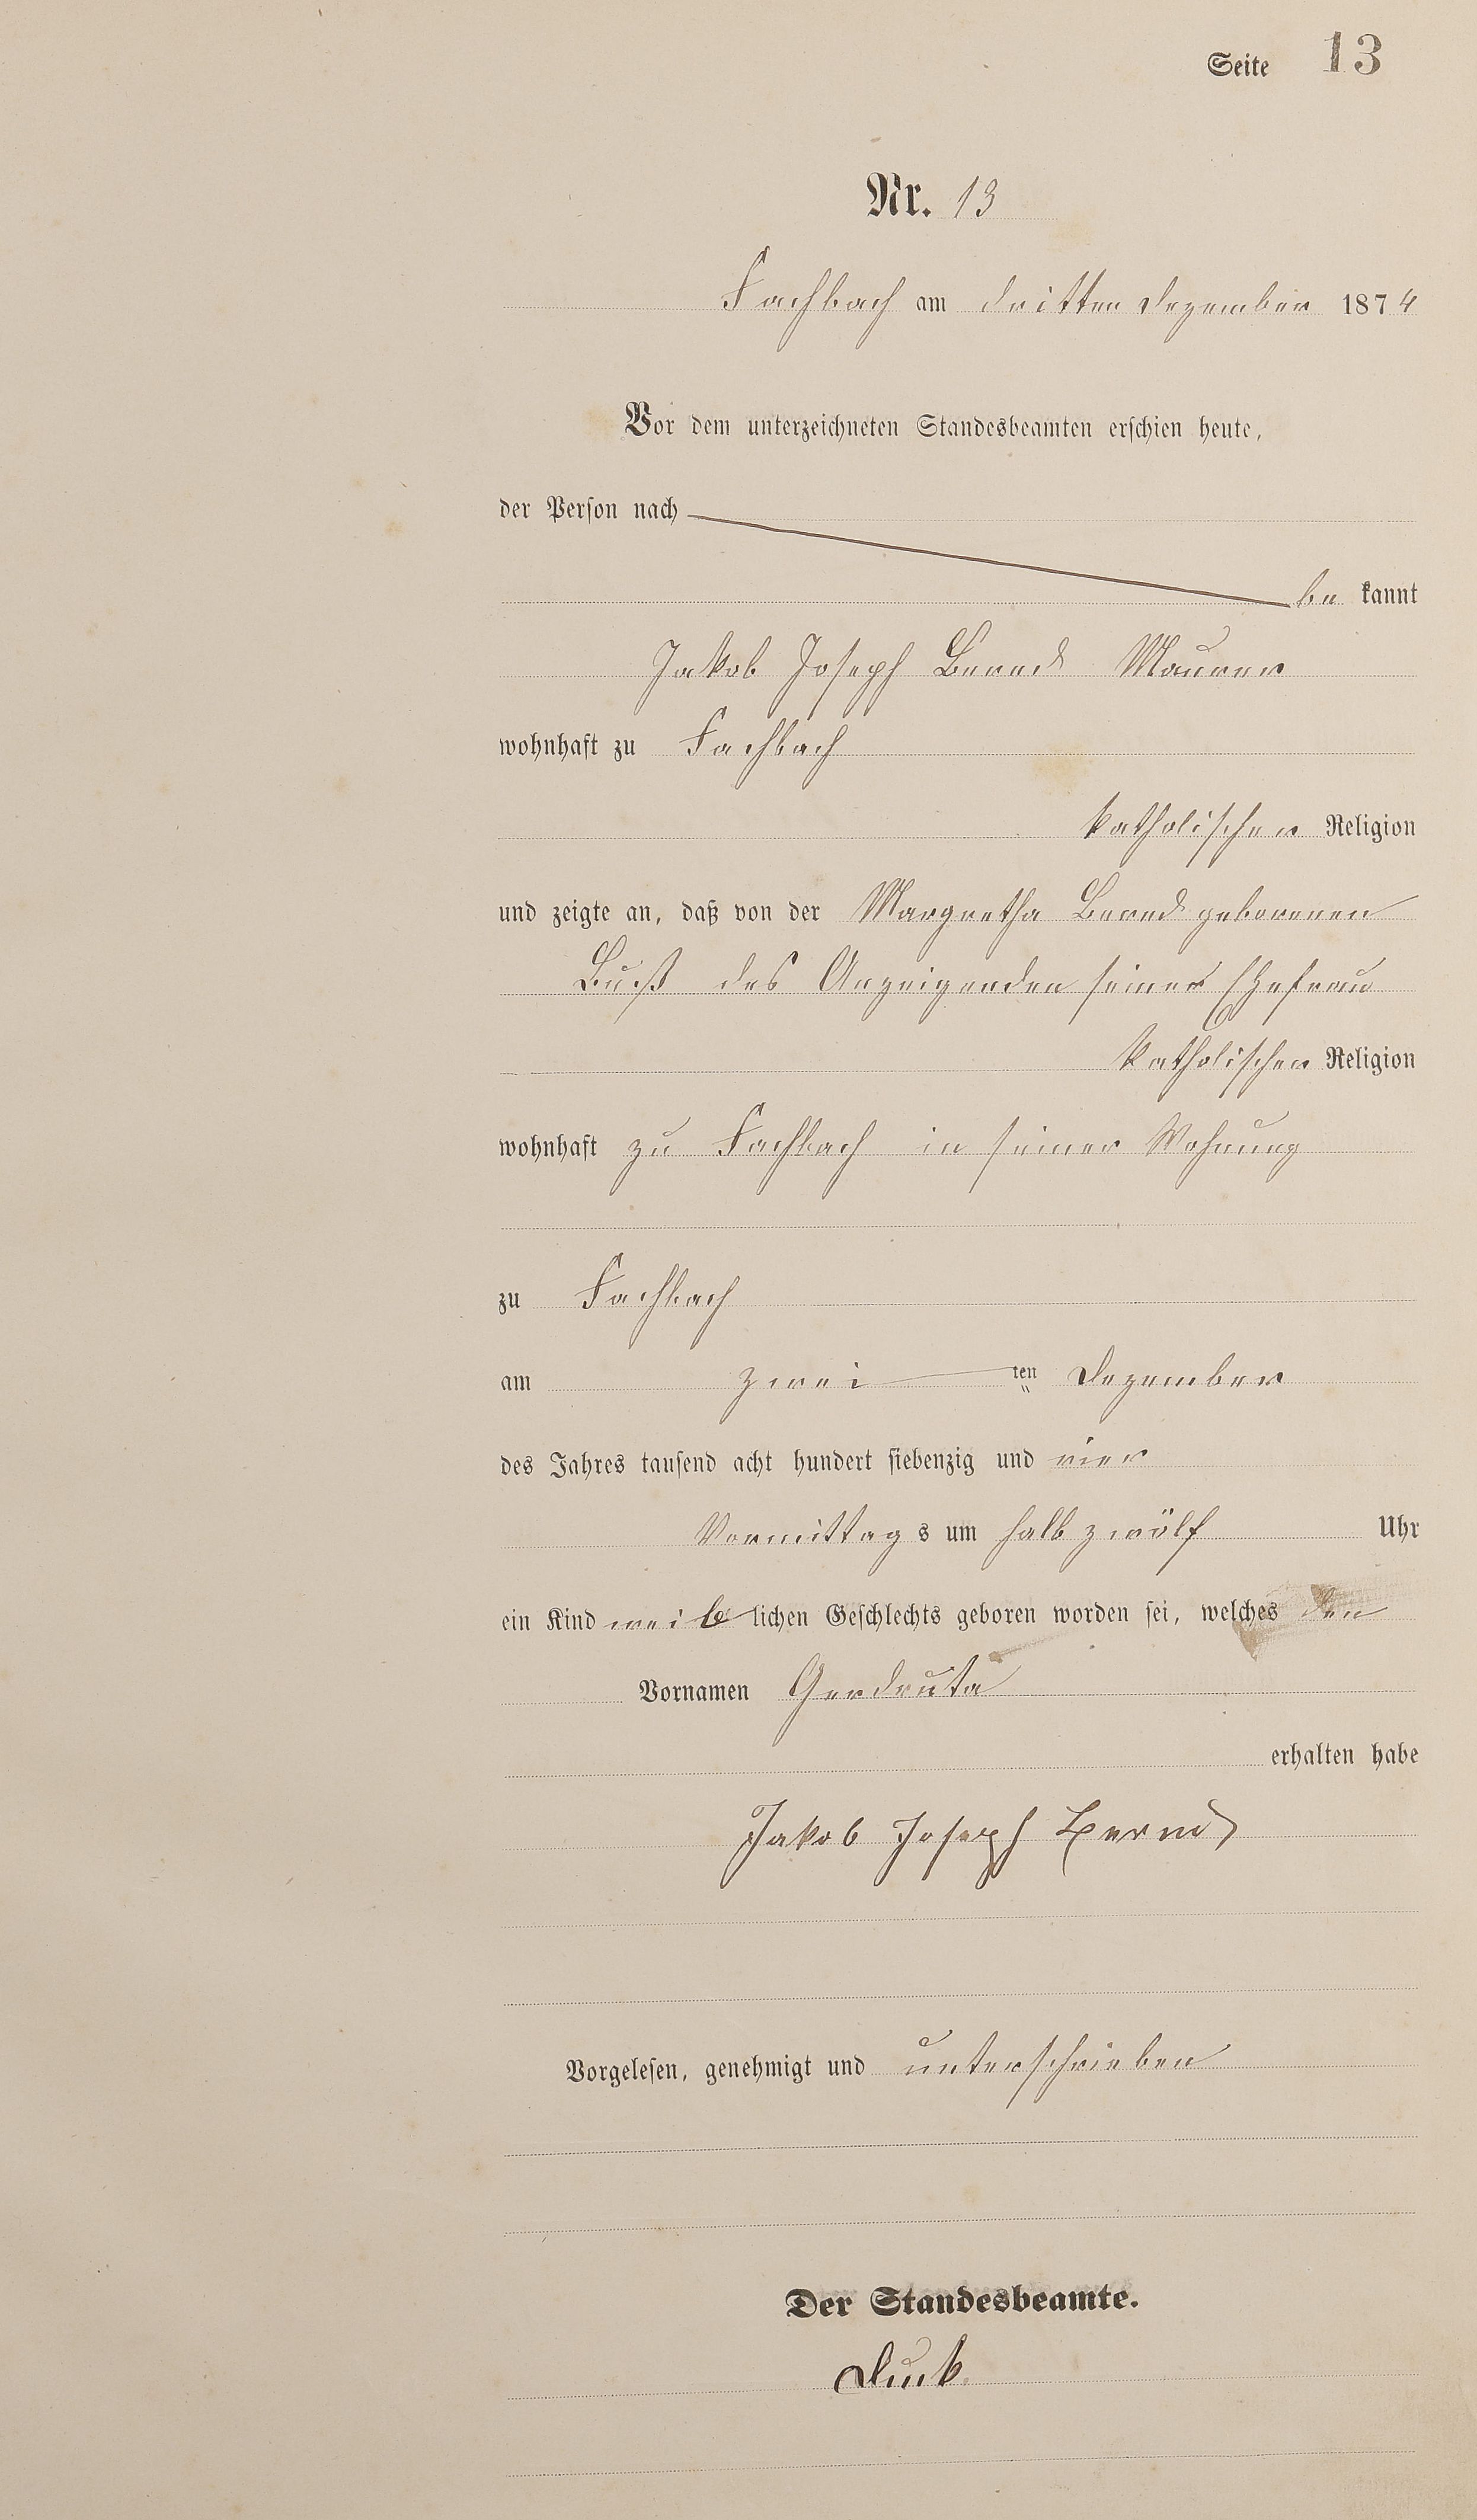 Seite 13
Nr. 13
Fachbach am dritten Dezember 1874
Vor dem unterzeichneten Standesbeamten erschien heute,
der Person nach
be kannt
Jakob Joseph Bernd Maurer
wohnhaft zu Fachbach
katholischer Religion
und zeigte an, daß von der Margretha Bernd geborenen
Buß des Anzeigenden seiner Ehefrau
katholischer Religion
wohnhaft zu Fachbach in seiner Wohnung
zu Fachbach
am zwei ten Dezember
des Jahres tausend acht hundert siebenzig und vier
Vormittag s um halb zwölf Uhr
ein Kind weib lichen Geschlechts geboren worden sei, welches den
Vornamen Gerdruta
erhalten habe
Jakob Joseph Bernd
Vorgelesen, genehmigt und unterschrieben
Der Standesbeamte.